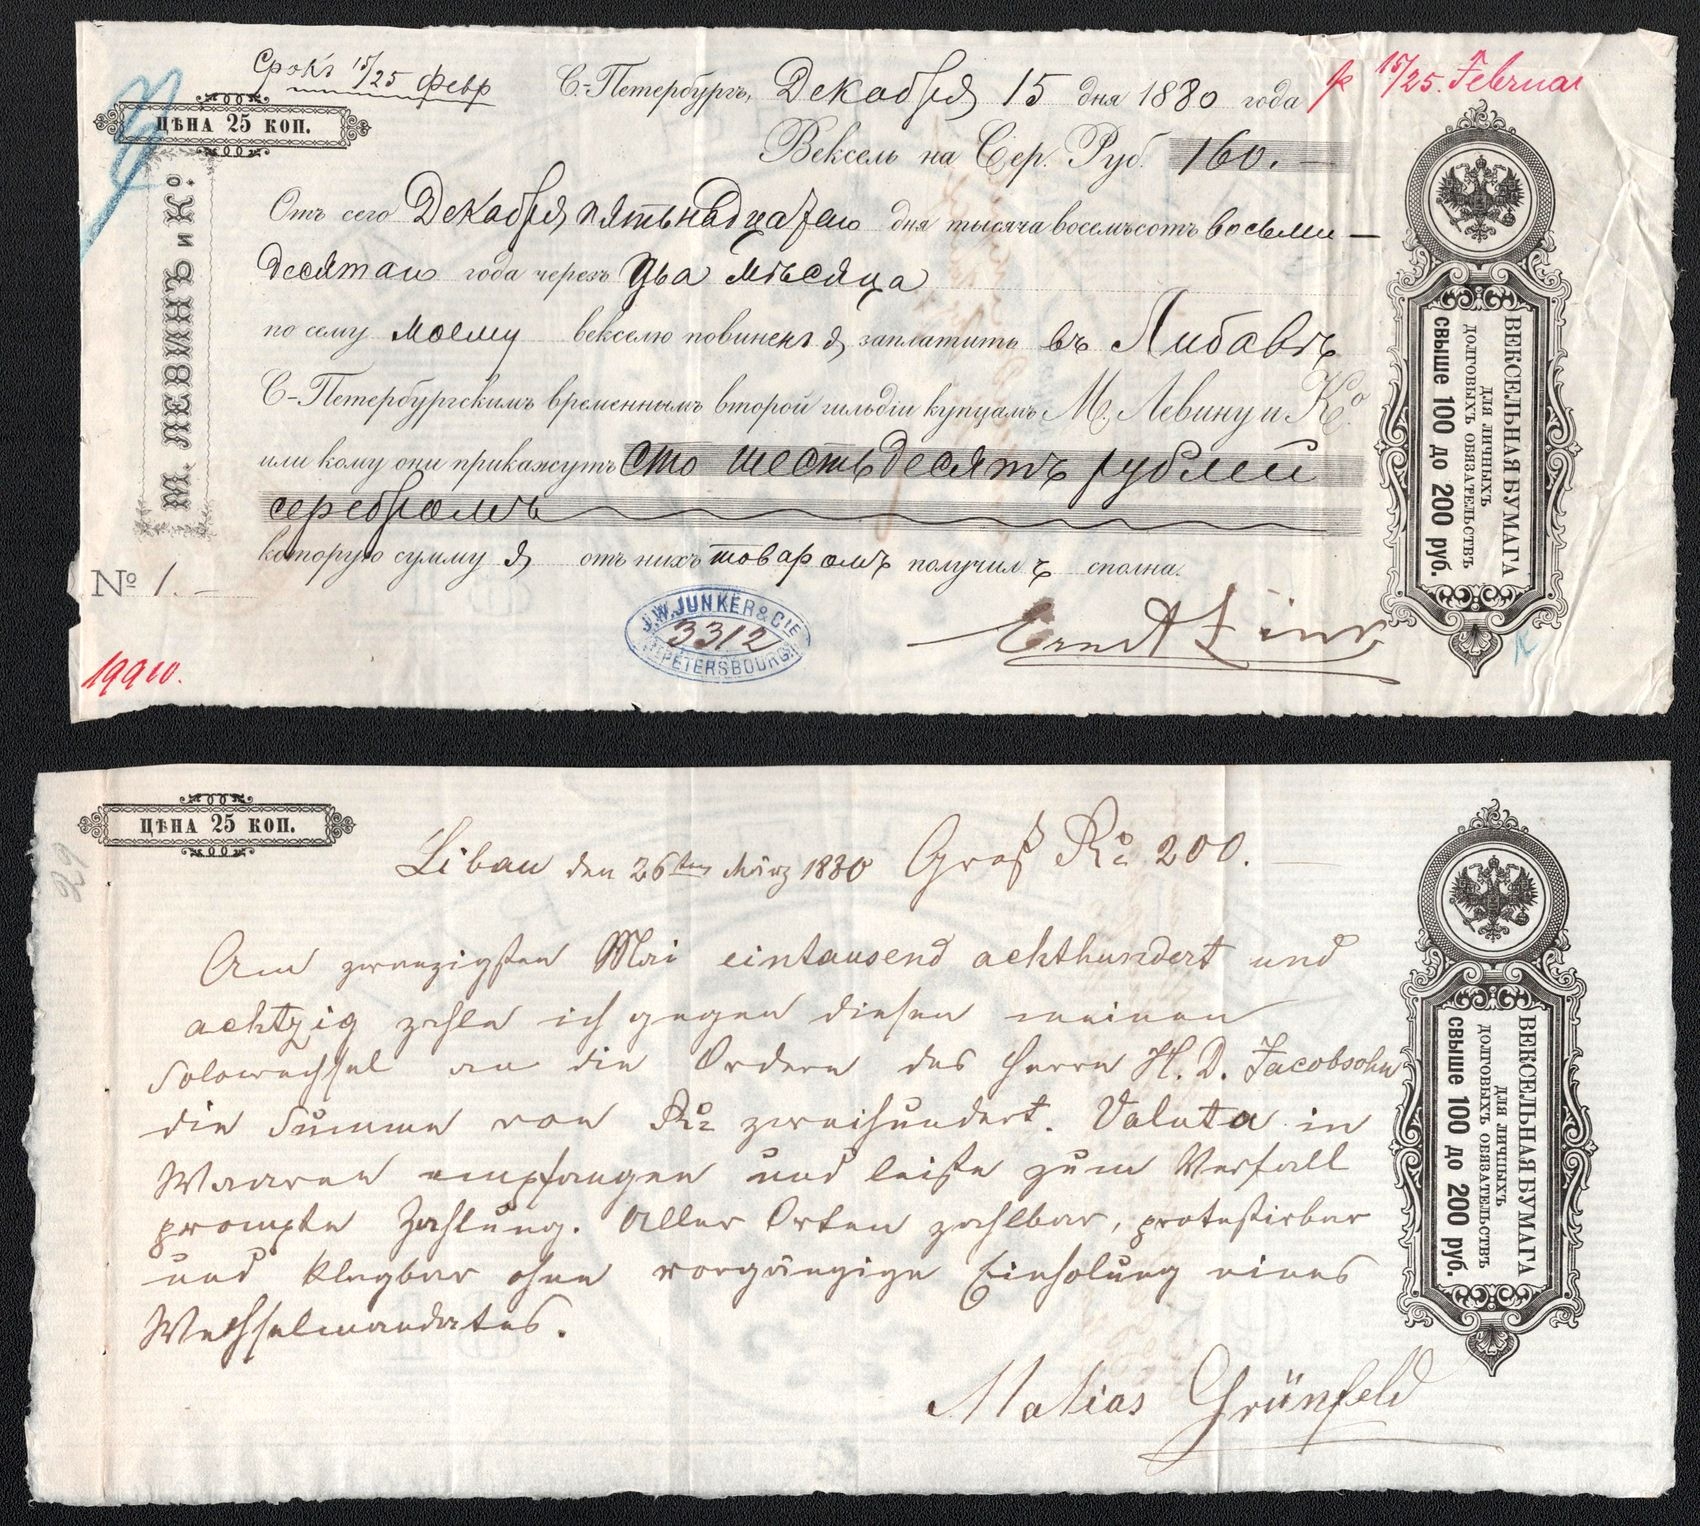 Срокъ 15/25 февр
С.-Петербургъ, Декабря 15 дня 1880 года
р 15/25. Februar
ЦѢНА 25 КОП.
Вексель на Сер. Руб. 160. —
М. ЛЕВИНЪ и Ко.
Отъ сего Декабря пятьнадцатаго дня тысяча восемьсотъ восьми—
десятаго года черезъ два мѣсяца
по сему моему векселю повиненъ я заплатить въ Либавѣ
С-Петербургскимъ временнымъ второй гильдіи купцамъ М. Левину и Ко.
или кому они прикажутъ сто шестьдесятъ рублей
серебромъ
которую сумму я отъ нихъ товаромъ получилъ сполна.
№ 1. —
J.W. JUNKER & CIE
3312
ST PETERSBOURG
Ernst
19910.
ВЕКСЕЛЬНАЯ БУМАГА
ДЛЯ ЛИЧНЫХЪ
ДОЛГОВЫХЪ ОБЯЗАТЕЛЬСТВЪ
СВЫШЕ 100 ДО 200 РУБ.
ЦѢНА 25 КОП.
29
Libau den 26ten März 1880 Groß Ro 200. —
Am zwanzigsten Mai eintausend achthundert und
achtzig zahle ich gegen diesen meinen
Solawechsel an die Ordre des Herrn H. D. Jacobsohn
die Summe von Ro zweihundert. Valuta in
Waaren empfangen und leiste zum Verfall
prompte Zahlung. Aller Orten zahlbar, protestirbar
und klagbar ohne vorgängige Einholung eines
Wechselmandates.
Matias Grünfeld
ВЕКСЕЛЬНАЯ БУМАГА
ДЛЯ ЛИЧНЫХЪ
ДОЛГОВЫХЪ ОБЯЗАТЕЛЬСТВЪ
СВЫШЕ 100 ДО 200 РУБ.